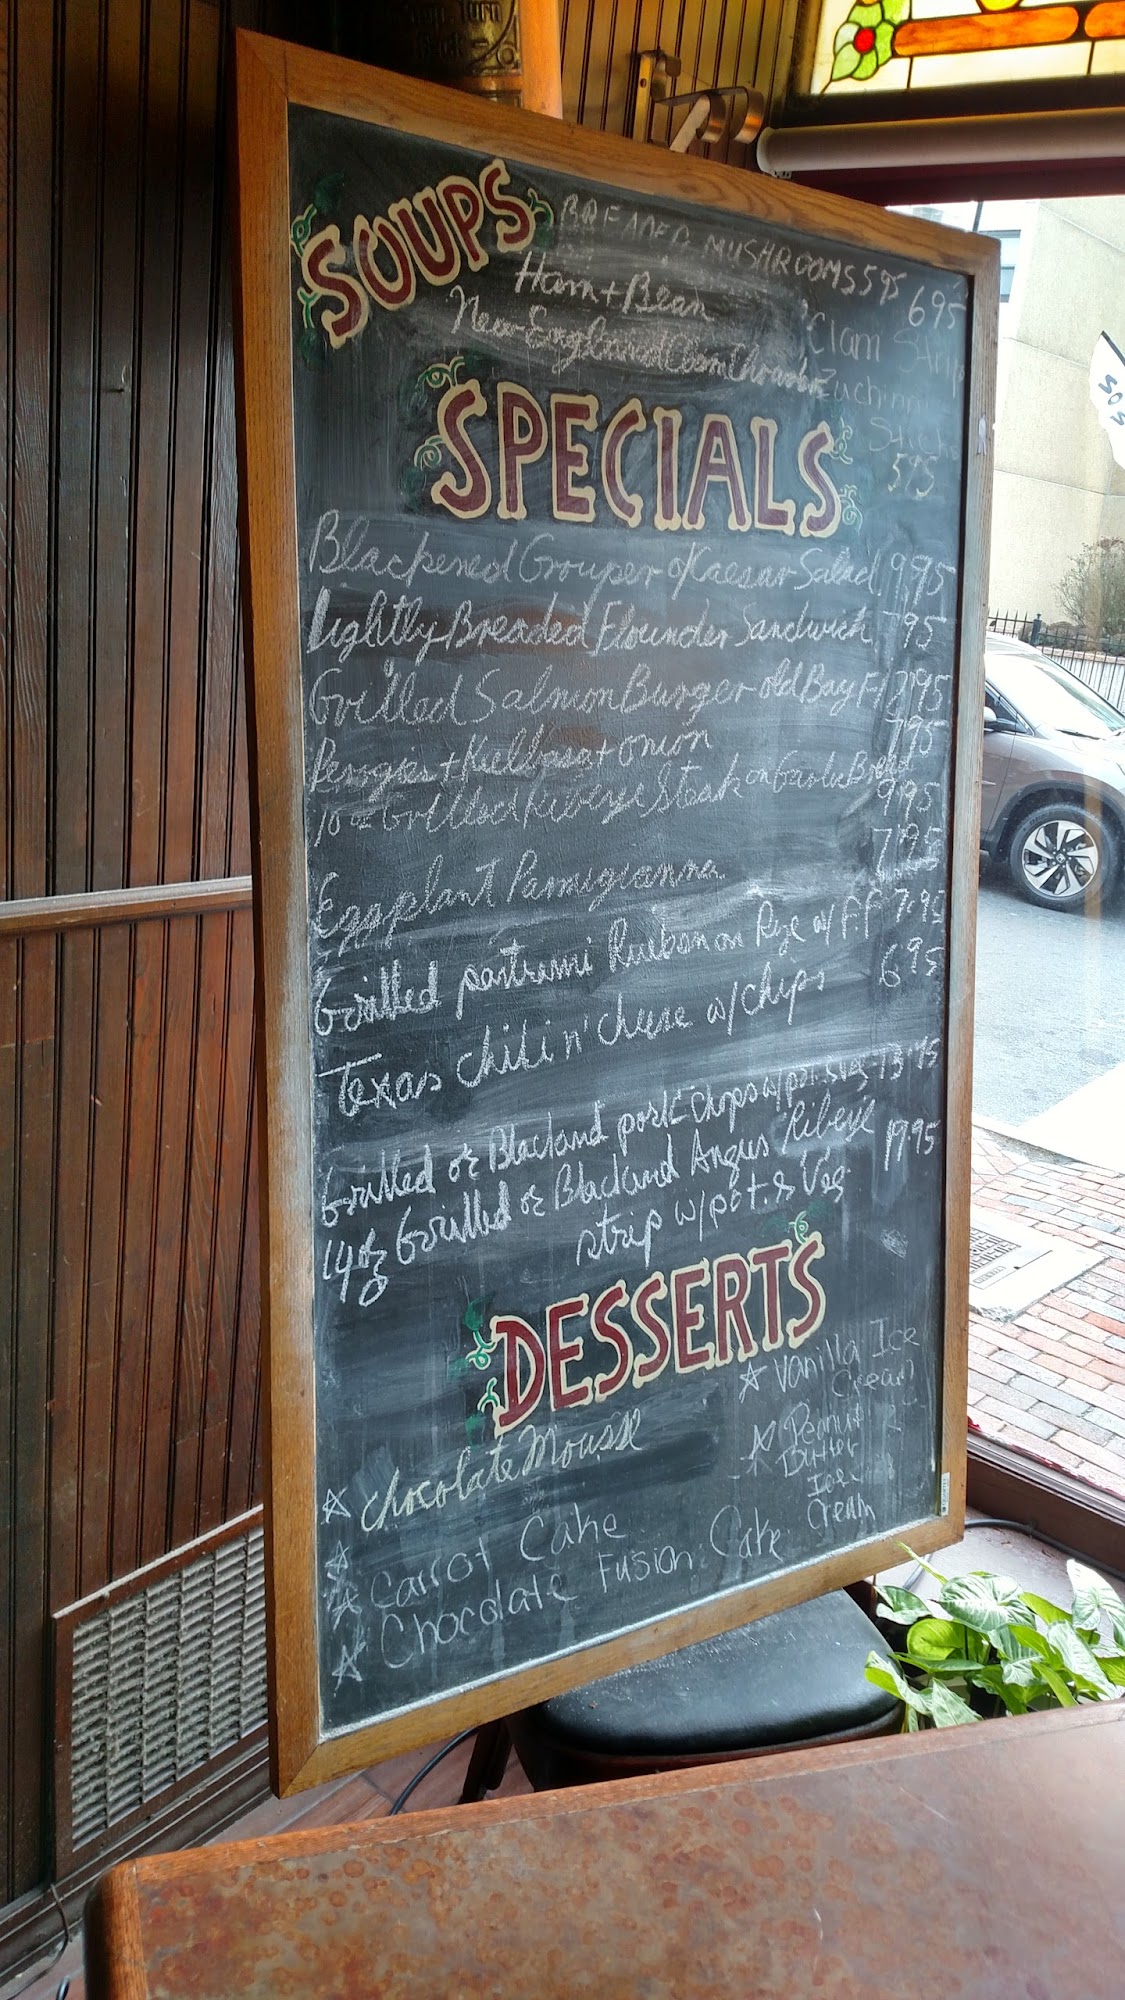 SOUPS
BREADED MUSHROOMS 595
Ham + Bean
New England Clam Chowder
695
Clam Strip
Zuchinni
Sticks
595
SPECIALS
Blackened Grouper Caesar Salad 9.95
Lightly Breaded Flounder Sandwich 795
Grilled Salmon Burger old Bay FF 995
Perogies + Kielbasa + onion 795
10oz Grilled Ribeye Steak on Garlic Bread 995
Eggplant Parmigianna 795
Grilled pastrimi Rueben on Rye w/ F.F 7.95
Texas chili n' cheese w/ chips 695
Grilled or Blackend pork chops w/ pot. & veg 13.95
14oz Grilled or Blackend Angus Ribeye 19.95
strip w/ pot. & Veg
DESSERTS
Chocolate Mousse
Carrot Cake
Chocolate Fusion Cake
Vanilla Ice
Cream
Peanut
Butter
Ice
Cream